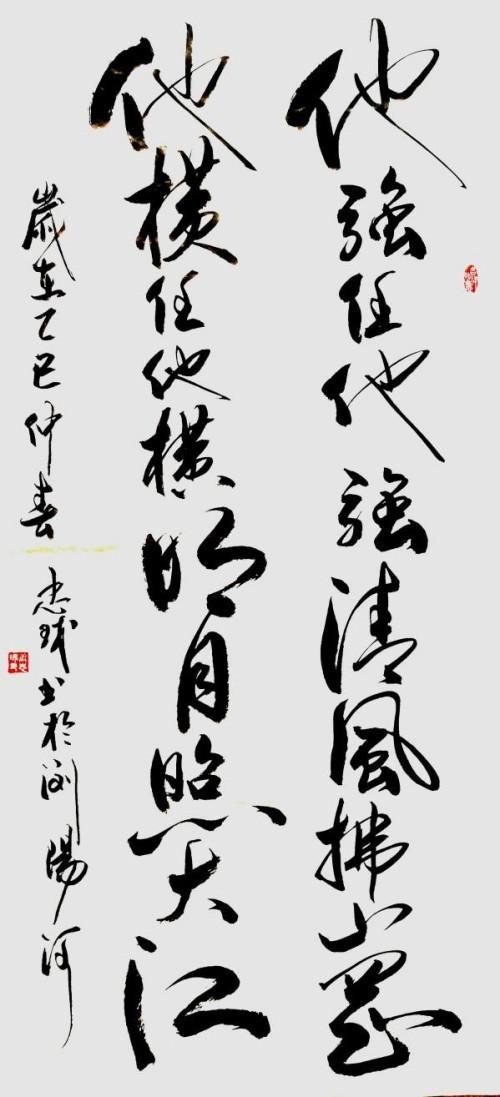 他強任他強清風拂山岡
他横任他横明月照大江
歲在乙巳仲春 忠球书於浏陽河